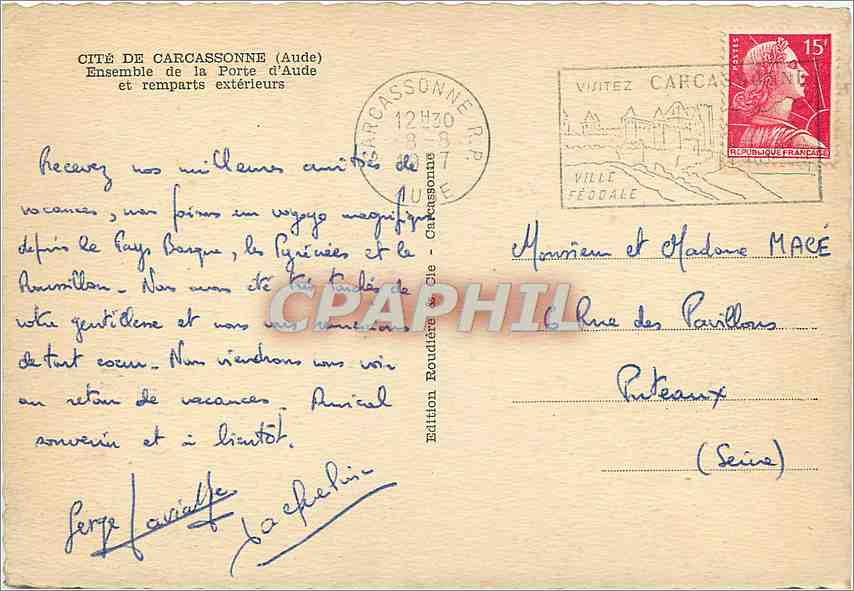 CITÉ DE CARCASSONNE (Aude)
Ensemble de la Porte d'Aude
et remparts extérieurs
CARCASSONNE R.P.
12H30
8 - 8
AUDE
VISITEZ CARCASSONNE
VILLE
FÉODALE
POSTES
15F
REPUBLIQUE FRANÇAISE
Recevez nos meilleures amitiés de
vacances, nous faisons un voyage magnifique
depuis le Pays Basque, les Pyrénées et le
Roussillon - Nous avons été très touchés de
votre gentillesse et nous vous remercions
de tout coeur - Nous viendrons vous voir
au retour de vacances. Amical
souvenir et à bientôt.
Serge
Jacqueline
Edition Roudière & Cie - Carcassonne
Monsieur et Madame MACÉ
6 Rue des Pavillons
Puteaux
(Seine)
CPAPHIL